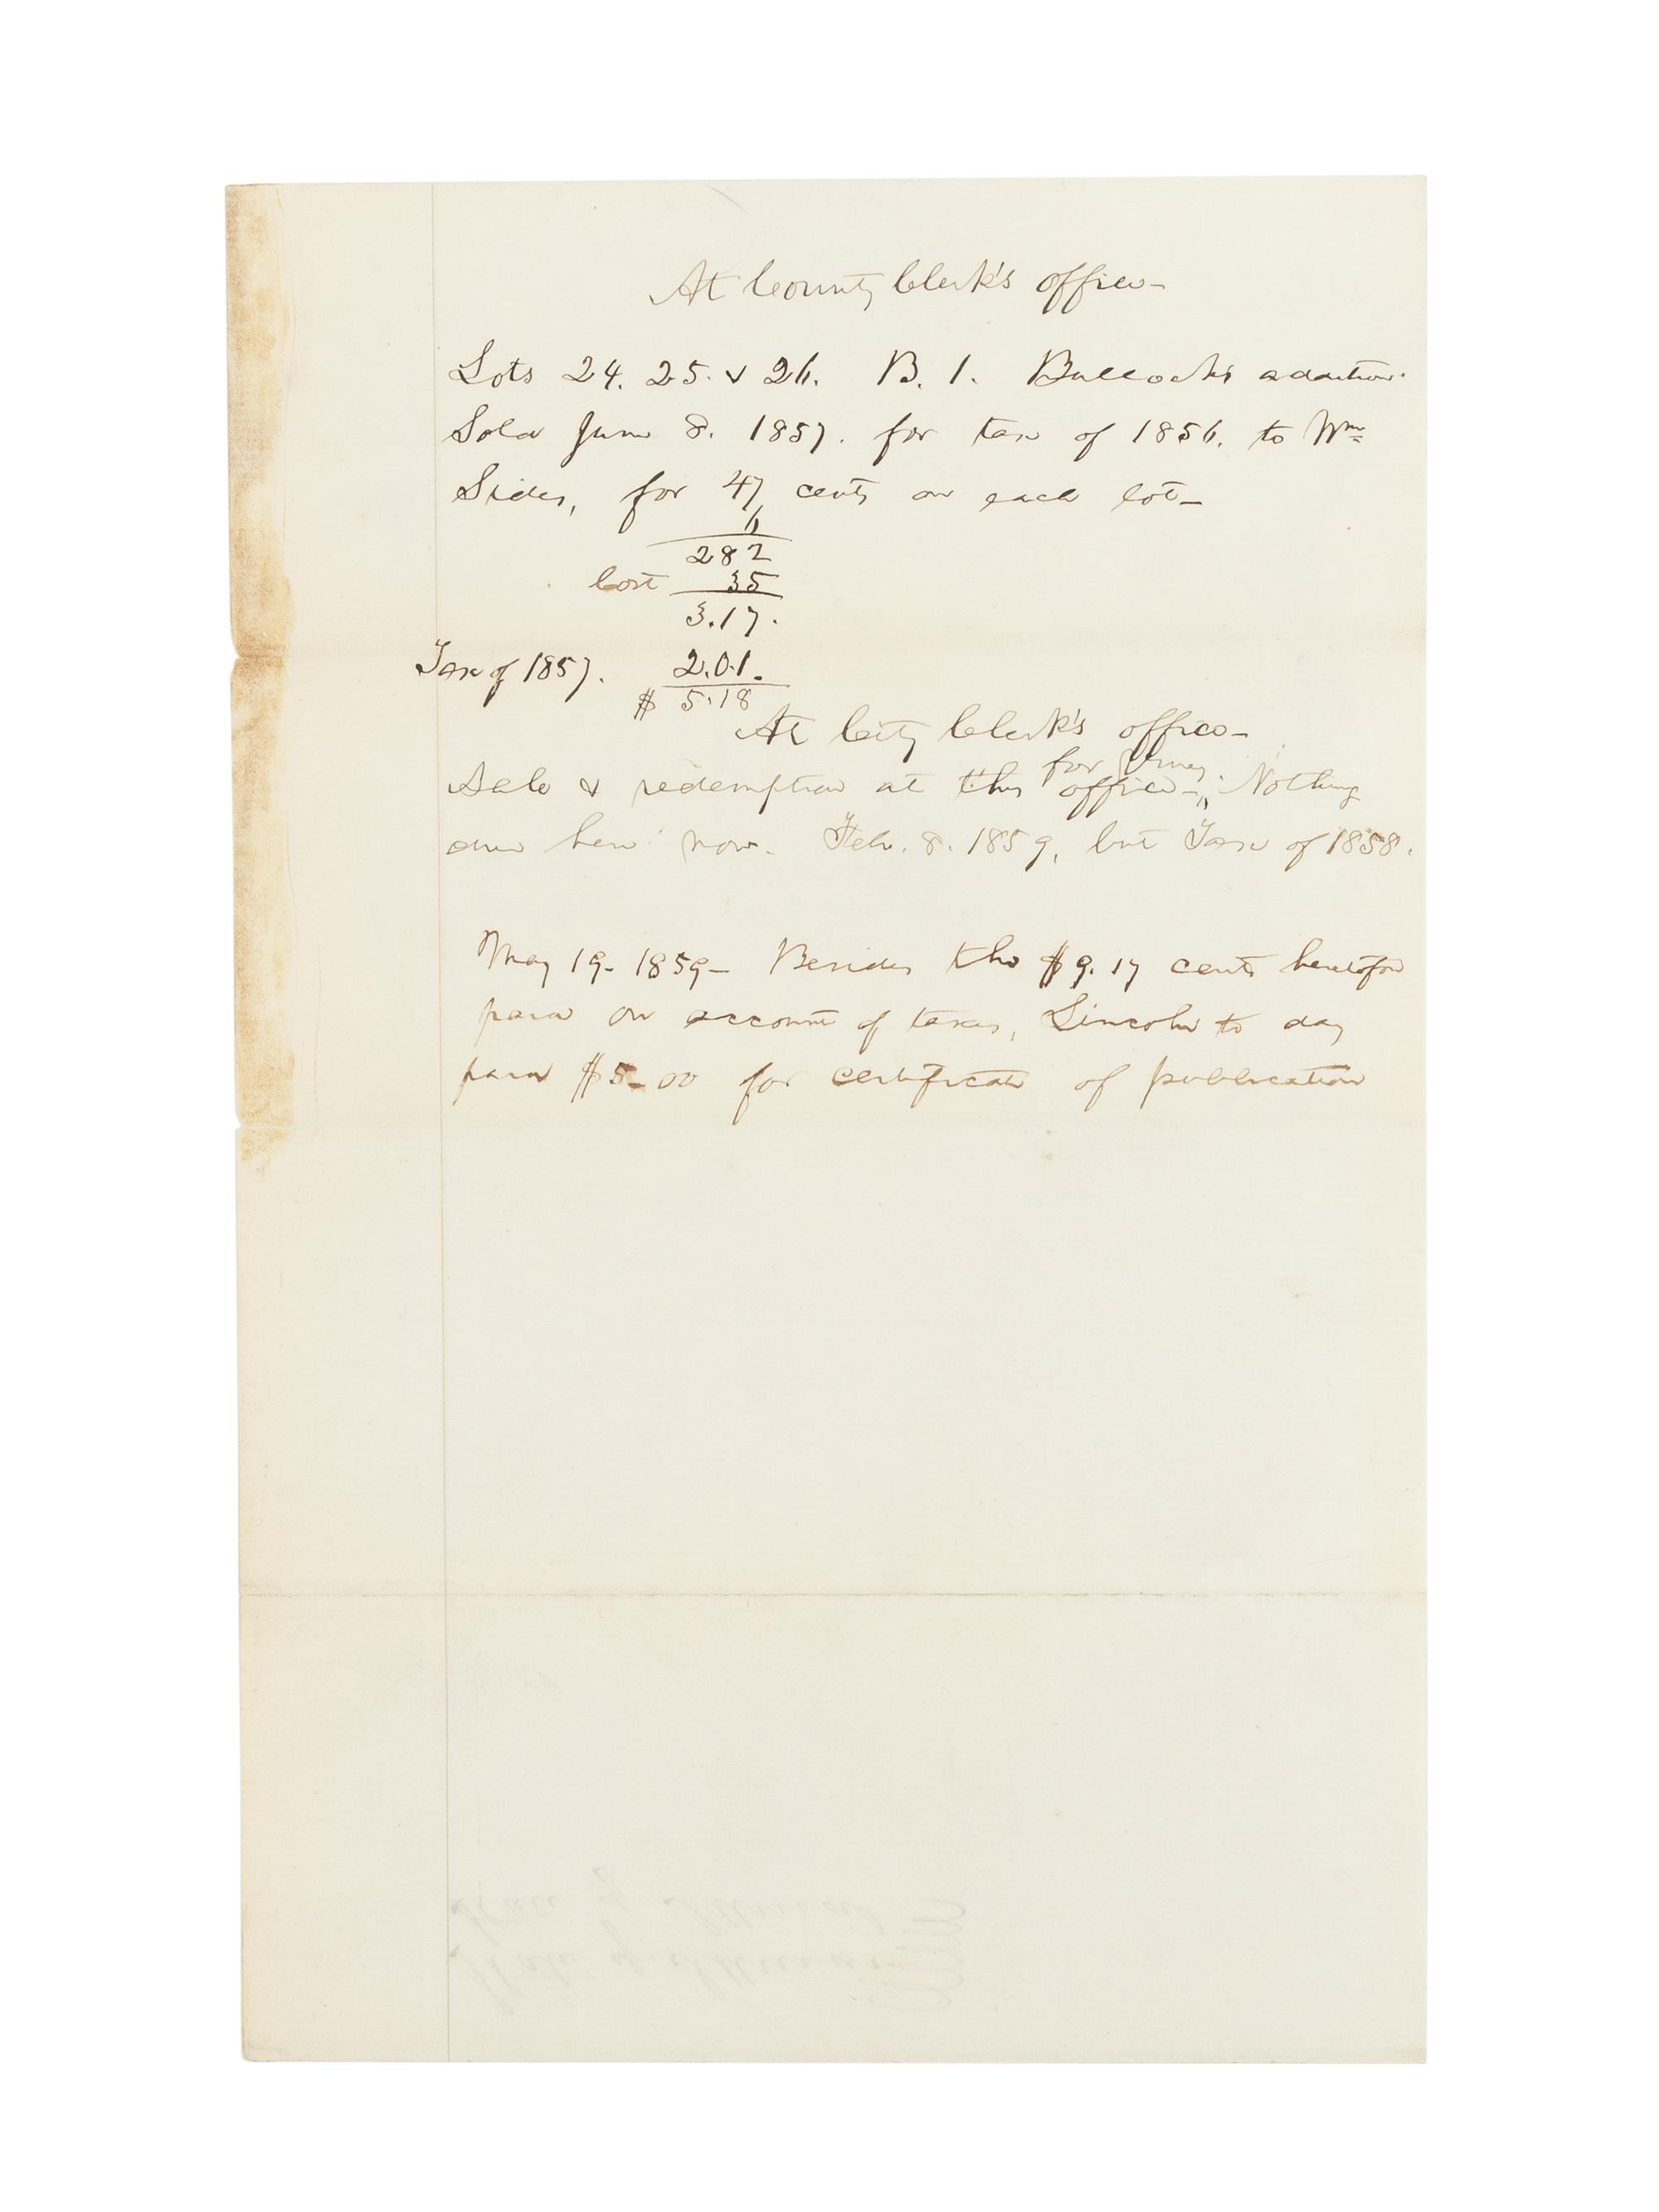 At County Clerk's office—
Lots 24. 25. & 26. B. 1. Bullock's addition.
Sold June 8. 1857. for tax of 1856. to Wm
Sides, for 47 cents on each lot—
6
282
Cost 35
3.17.
Tax of 1857. 2.01.
$ 5.18
At City Clerk's office—
for
Sale & redemption at this office—. Nothing
due here now. Feb. 8. 1859, but Tax of 1858.
May 19. 1859— Besides the $9.17 cents heretofore
paid on account of taxes, Lincoln to day
paid $5–00 for certificate of publication